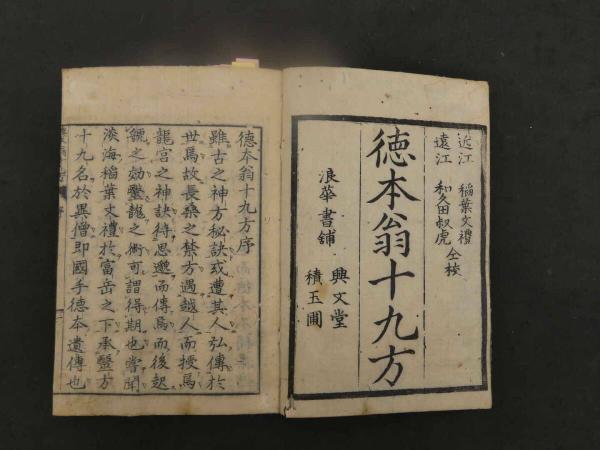 近江 稲葉文禮
遠江 和久田叔虎 仝校
徳本翁十九方
浪華書舗 興文堂
積玉圃
徳本翁十九方序
雖古之神方秘訣或遭其人弘傳於
世焉故長桑之禁方遇越人而授焉
龍宮之神訣待思邈而傳焉而後起
虢之効鑿龍之術可謂得期也嘗聞
淡海稲葉文禮於富岳之下承盬方
十九名於異僧即國手徳本遺傳也